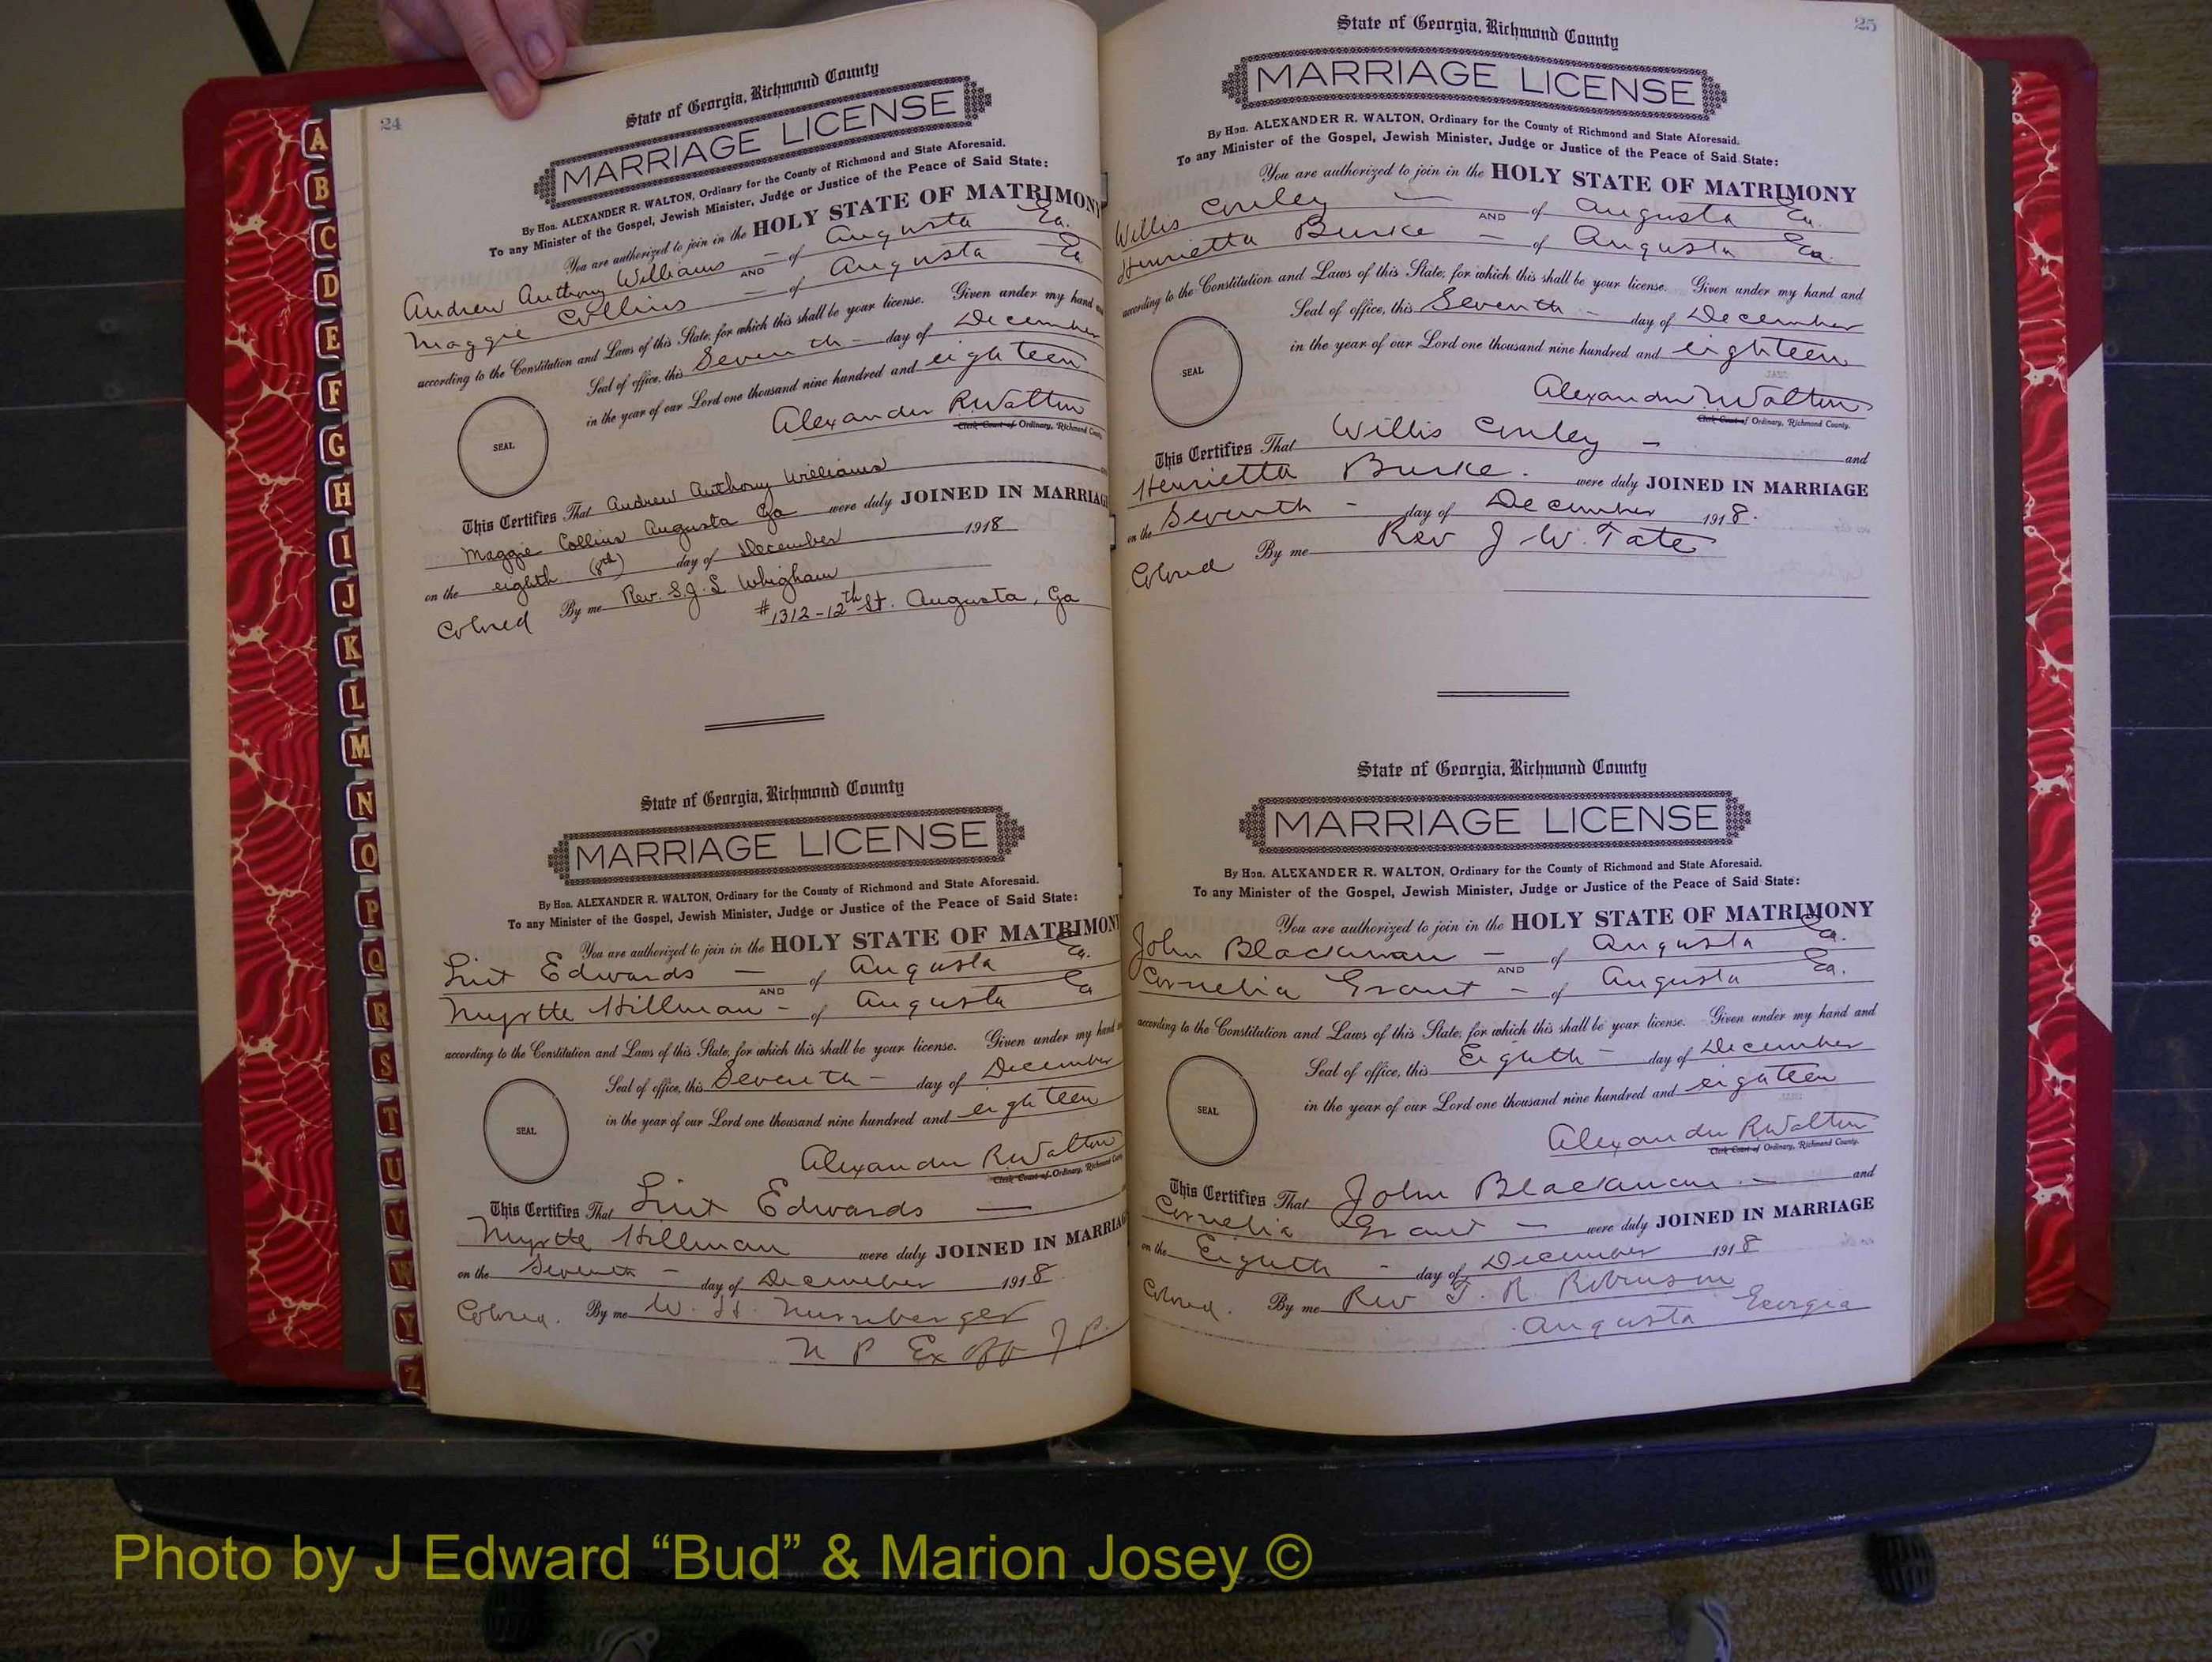 24
State of Georgia, Richmond County
MARRIAGE LICENSE
By Hon. ALEXANDER R. WALTON, Ordinary for the County of Richmond and State Aforesaid.
To any Minister of the Gospel, Jewish Minister, Judge or Justice of the Peace of Said State:
You are authorized to join in the HOLY STATE OF MATRIMONY
Andrew Anthony Williams — of Augusta Ga.
AND
Maggie Collins — of Augusta Ga
according to the Constitution and Laws of this State, for which this shall be your license. Given under my hand
Seal of office, this Seventh — day of December
in the year of our Lord one thousand nine hundred and eighteen
SEAL
Alexander R. Walton
Clerk Court of Ordinary, Richmond County
This Certifies That Andrew Anthony Williams
Maggie Collins Augusta Ga were duly JOINED IN MARRIAG
on the eighth (8th) day of December 1918
Colored By me Rev. S.J.S Whigham
#1312-12th St. Augusta, Ga
State of Georgia, Richmond County
MARRIAGE LICENSE
By Hon. ALEXANDER R. WALTON, Ordinary for the County of Richmond and State Aforesaid.
To any Minister of the Gospel, Jewish Minister, Judge or Justice of the Peace of Said State:
You are authorized to join in the HOLY STATE OF MATRIMONY
Edwards — of Augusta Ga.
AND
Myrtte Hillman — of Augusta Ga
according to the Constitution and Laws of this State, for which this shall be your license. Given under my hand
Seal of office, this Seventh — day of December
in the year of our Lord one thousand nine hundred and eighteen
SEAL
Alexander R Walton
Clerk Court of Ordinary, Richmond County
This Certifies That Edwards —
Myrtte Hillman were duly JOINED IN MARRIAG
on the Seventh — day of December 1918.
Colored. By me W. H. Nurnberger
N P Ex off J P.
25
State of Georgia, Richmond County
MARRIAGE LICENSE
By Hon. ALEXANDER R. WALTON, Ordinary for the County of Richmond and State Aforesaid.
To any Minister of the Gospel, Jewish Minister, Judge or Justice of the Peace of Said State:
You are authorized to join in the HOLY STATE OF MATRIMONY
Willis Conley — of Augusta Ga.
AND
Henrietta Burke — of Augusta Ga.
according to the Constitution and Laws of this State, for which this shall be your license. Given under my hand and
Seal of office, this Seventh — day of December
in the year of our Lord one thousand nine hundred and eighteen
SEAL
Alexander R Walton
Clerk Court of Ordinary, Richmond County.
This Certifies That Willis Conley — and
Henrietta Burke. were duly JOINED IN MARRIAGE
on the Seventh — day of December 1918.
Colored By me Rev J. W. Tate
State of Georgia, Richmond County
MARRIAGE LICENSE
By Hon. ALEXANDER R. WALTON, Ordinary for the County of Richmond and State Aforesaid.
To any Minister of the Gospel, Jewish Minister, Judge or Justice of the Peace of Said State:
You are authorized to join in the HOLY STATE OF MATRIMONY
John Blackman — of Augusta Ga.
AND
Cornelia Grant — of Augusta Ga.
according to the Constitution and Laws of this State, for which this shall be your license. Given under my hand and
Seal of office, this Eighth — day of December
in the year of our Lord one thousand nine hundred and eighteen
SEAL
Alexander R Walton
Clerk Court of Ordinary, Richmond County.
This Certifies That John Blackman — and
Cornelia Grant — were duly JOINED IN MARRIAGE
on the Eighth — day of December 1918
Colored. By me Rev T. R. Robinson
Augusta Georgia
A
B
C
D
E
F
G
H
I
J
K
L
M
N
O
P
Q
R
S
T
U
V
W
Y
Z
Photo by J Edward “Bud” & Marion Josey ©